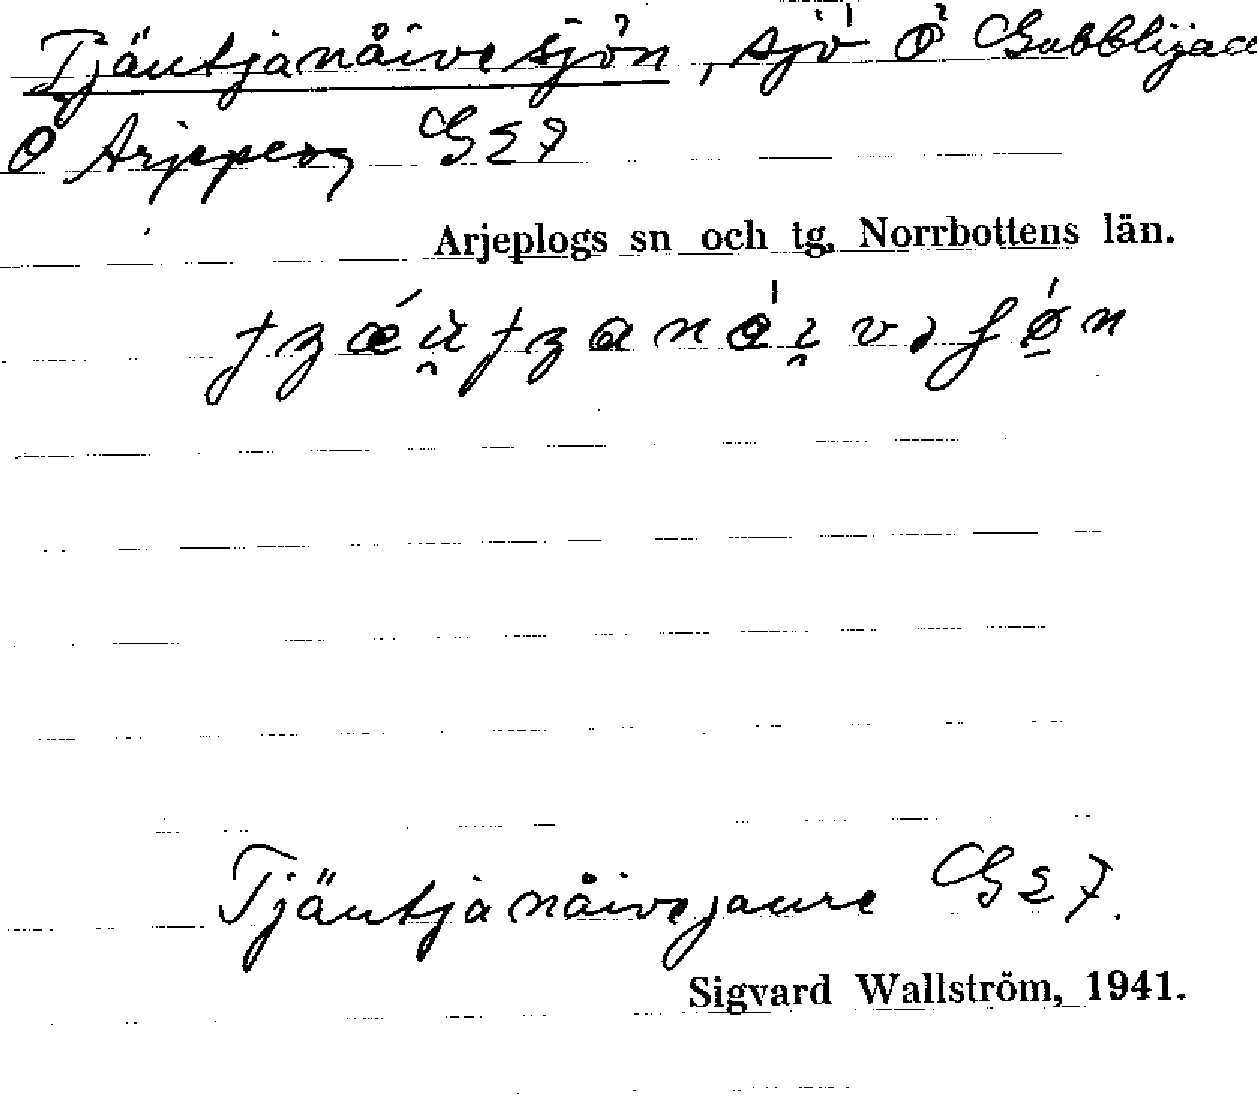 Tjäutjanåivesjön, sjö Ö Gubblijaur
Ö Arjeplog G27
Arjeplogs sn och tg, Norrbottens län.
Tjäutjanåivejaure G27.
Sigvard Wallström, 1941.